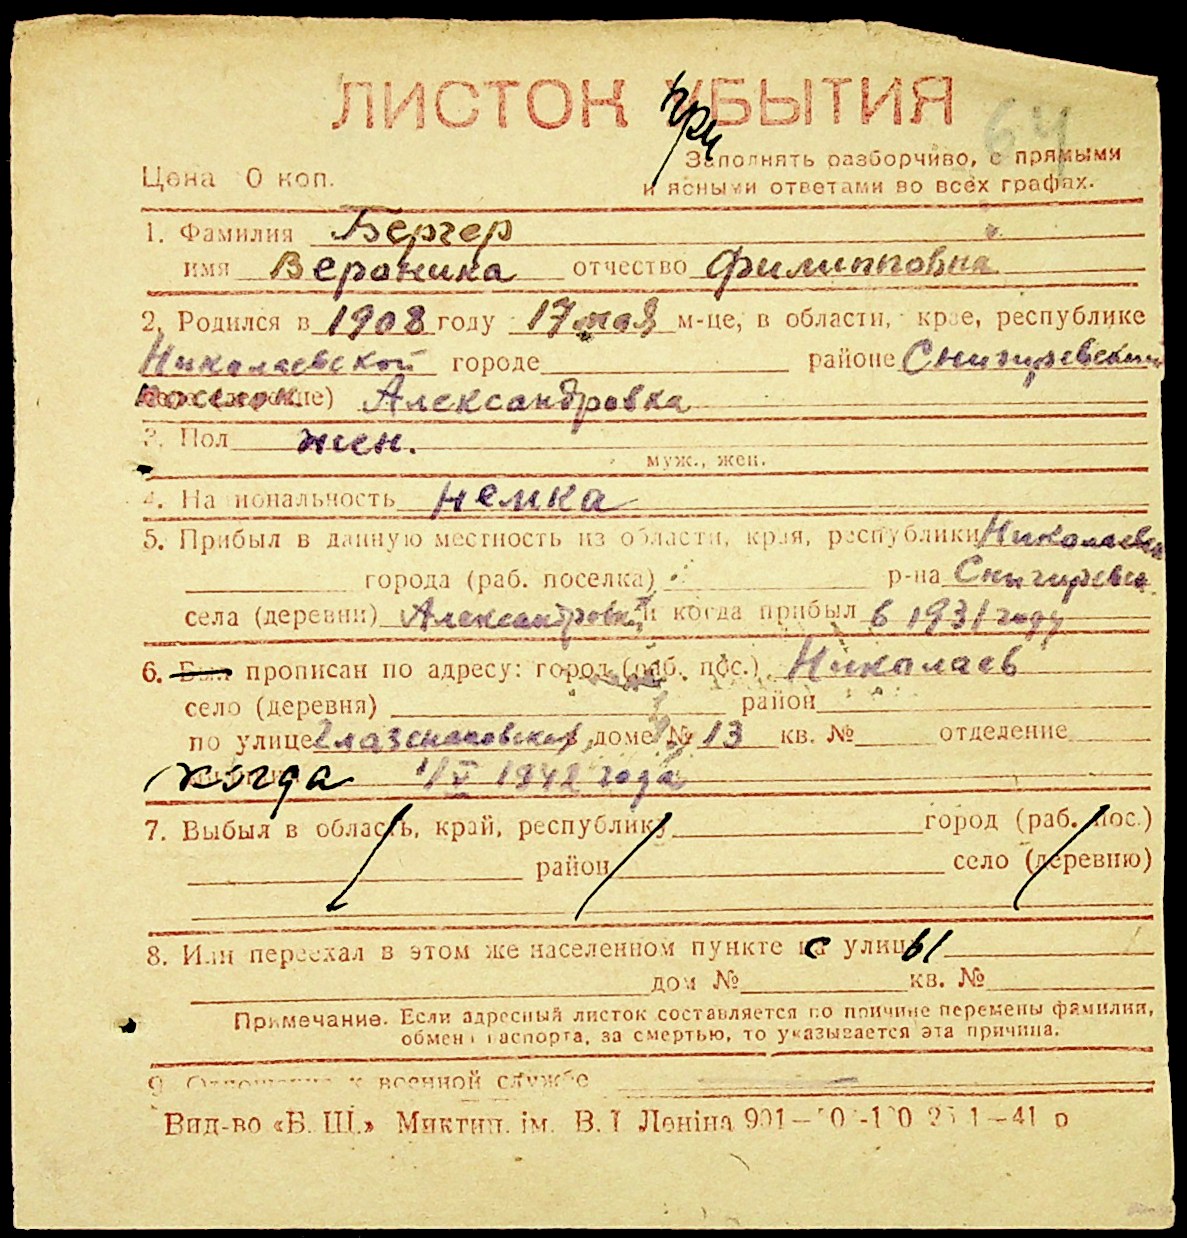 ЛИСТОК УБЫТИЯ
при
64
Заполнять разборчиво, с прямыми
и ясными ответами во всех графах.
Цена 0 коп.
1. Фамилия Бергер
имя Вероника отчество Филипповна
2. Родился в 1908 году 17 мая м-це, в области, крае, республике
Николаевской городе районе Снигиревский
поселок Александровка
3. Пол жен.
муж., жен.
4. Национальность немка
5. Прибыл в данную местность из области, края, республики Николаевск
города (раб. поселка) р-на Снигиревск
села (деревни) Александровка и когда прибыл в 1931 году
6. Был прописан по адресу: город (раб. пос.) Николаев
село (деревня) район
по улице доме № 13 кв. № отделение
когда 1/V 1942 года
7. Выбыл в область, край, республику город (раб. пос.)
район село (деревню)
8. Или переехал в этом же населенном пункте с улицы
дом № кв. №
Примечание. Если адресный листок составляется по причине перемены фамилии,
обмена паспорта, за смертью, то указывается эта причина.
9. Отношение к военной службе
Вид-во «Б. Ш.» Миктип. ім. В. І Леніна